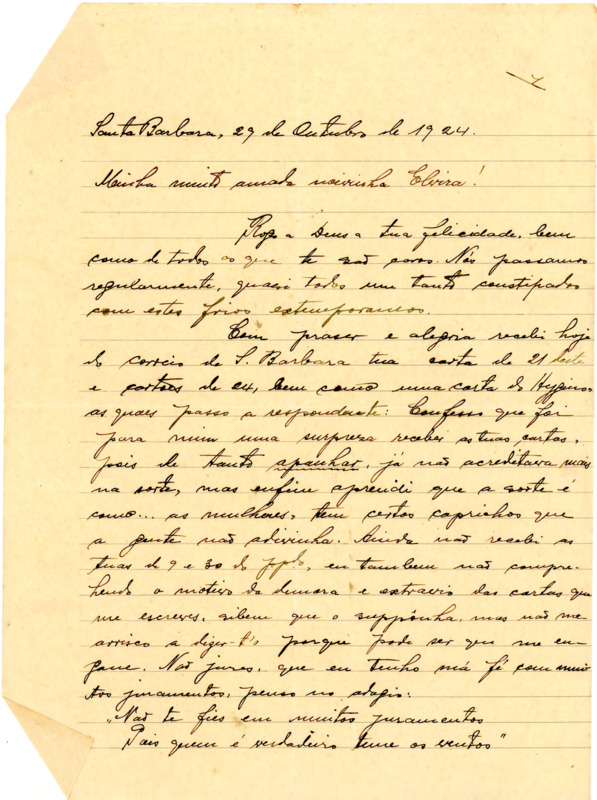 Santa Barbara, 29 de Outubro de 1924.
Minha muito amada noivinha Elvira!
Rogo a Deus a tua felicidade, bem
como de todos os que te são caros. Nós passamos
regularmente, quasi todos um tanto constipados
com estes frios extemporaneos.
Com praser e alegria recebi hoje
do correio de S. Barbara tua carta de 21 deste
e cartões de 24, bem como uma carta do Hygino,
as quaes passo a responder-te: Confesso que foi
para mim uma surpreza receber as tuas cartas,
pois de tanto apanhar, já não acreditava mais
na sorte, mas enfim aprendi que a sorte é
como... as mulheres, tem certos caprichos que
a gente não adivinha. Ainda não recebi as
tuas de 9 e 30 do ppdo, eu tambem não compre-
hendo o motivo da demora e extravio das cartas que
me escreves, si bem que o suppônha, mas não me
arrisco a dizer-t'o porque pode ser que me en-
gane. Não jures, que eu tenho má fé com mui-
tos juramentos, penso no adagio:
"Não te fies em muitos juramentos
Pois quem é verdadeiro teme os ventos"